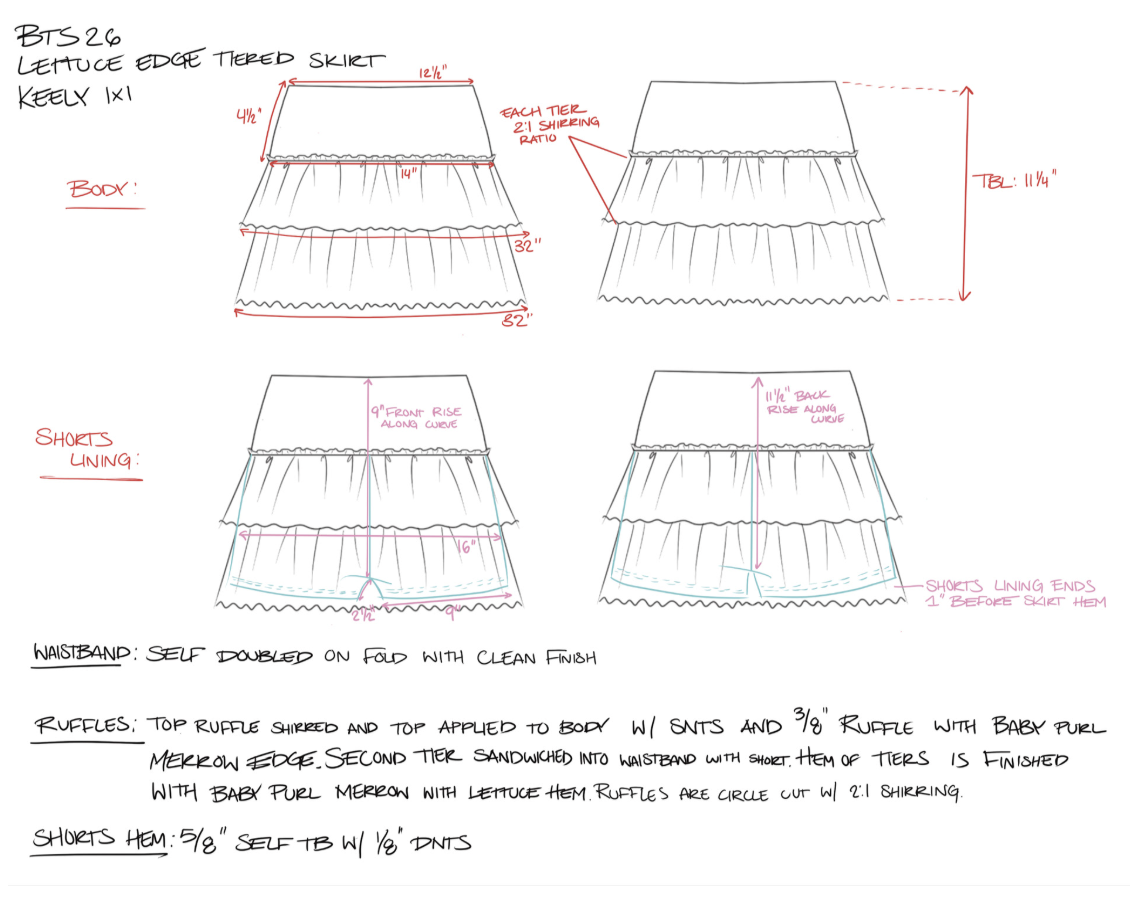 BTS26
LETTUCE EDGE TIERED SKIRT
KEELY 1X1
12½"
4½"
EACH TIER
2:1 SHIRRING
RATIO
14"
BODY:
TBL: 11¼"
32"
32"
9" FRONT RISE
ALONG CURVE
11½" BACK
RISE ALONG
CURVE
SHORTS
LINING:
16"
SHORTS LINING ENDS
1" BEFORE SKIRT HEM
2½"
9"
WAISTBAND: SELF DOUBLED ON FOLD WITH CLEAN FINISH
RUFFLES: TOP RUFFLE SHIRRED AND TOP APPLIED TO BODY W/ SNTS AND 3/8" RUFFLE WITH BABY PURL
MERROW EDGE. SECOND TIER SANDWICHED INTO WAISTBAND WITH SHORT. HEM OF TIERS IS FINISHED
WITH BABY PURL MERROW WITH LETTUCE HEM. RUFFLES ARE CIRCLE CUT W/ 2:1 SHIRRING.
SHORTS HEM: 5/8" SELF TB W/ 1/8" DNTS